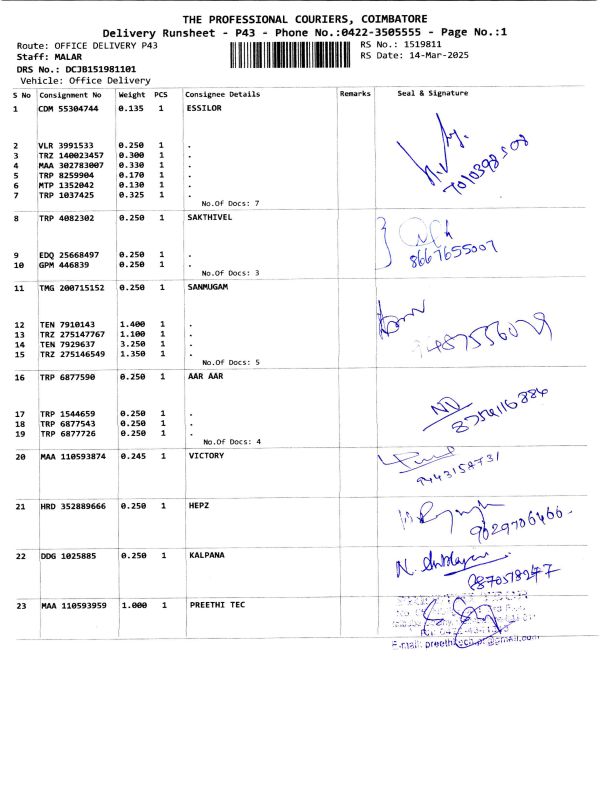 THE PROFESSIONAL COURIERS, COIMBATORE
Delivery Runsheet - P43 - Phone No.:0422-3505555 - Page No.:1
Route: OFFICE DELIVERY P43
RS No.: 1519811
Staff: MALAR
RS Date: 14-Mar-2025
DRS No.: DCJB151981101
Vehicle: Office Delivery
S No Consignment No Weight PCS Consignee Details Remarks Seal & Signature
1 CDM 55304744 0.135 1 ESSILOR
2 VLR 3991533 0.250 1 .
3 TRZ 140023457 0.300 1 .
4 MAA 302783007 0.330 1 .
5 TRP 8259904 0.170 1 .
6 MTP 1352042 0.130 1 .
7 TRP 1037425 0.325 1 .
7010398508
No.Of Docs: 7
8 TRP 4082302 0.250 1 SAKTHIVEL
9 EDQ 25668497 0.250 1 .
8667655007
10 GPM 446839 0.250 1 .
No.Of Docs: 3
11 TMG 200715152 0.250 1 SANMUGAM
12 TEN 7910143 1.400 1 .
13 TRZ 275147767 1.100 1 .
14 TEN 7929637 3.250 1 .
15 TRZ 275146549 1.350 1 .
No.Of Docs: 5
16 TRP 6877590 0.250 1 AAR AAR
17 TRP 1544659 0.250 1 .
18 TRP 6877543 0.250 1 .
19 TRP 6877726 0.250 1 .
No.Of Docs: 4
20 MAA 110593874 0.245 1 VICTORY
21 HRD 352889666 0.250 1 HEPZ
9629706466.
22 DDG 1025885 0.250 1 KALPANA
23 MAA 110593959 1.000 1 PREETHI TEC
E-mail: